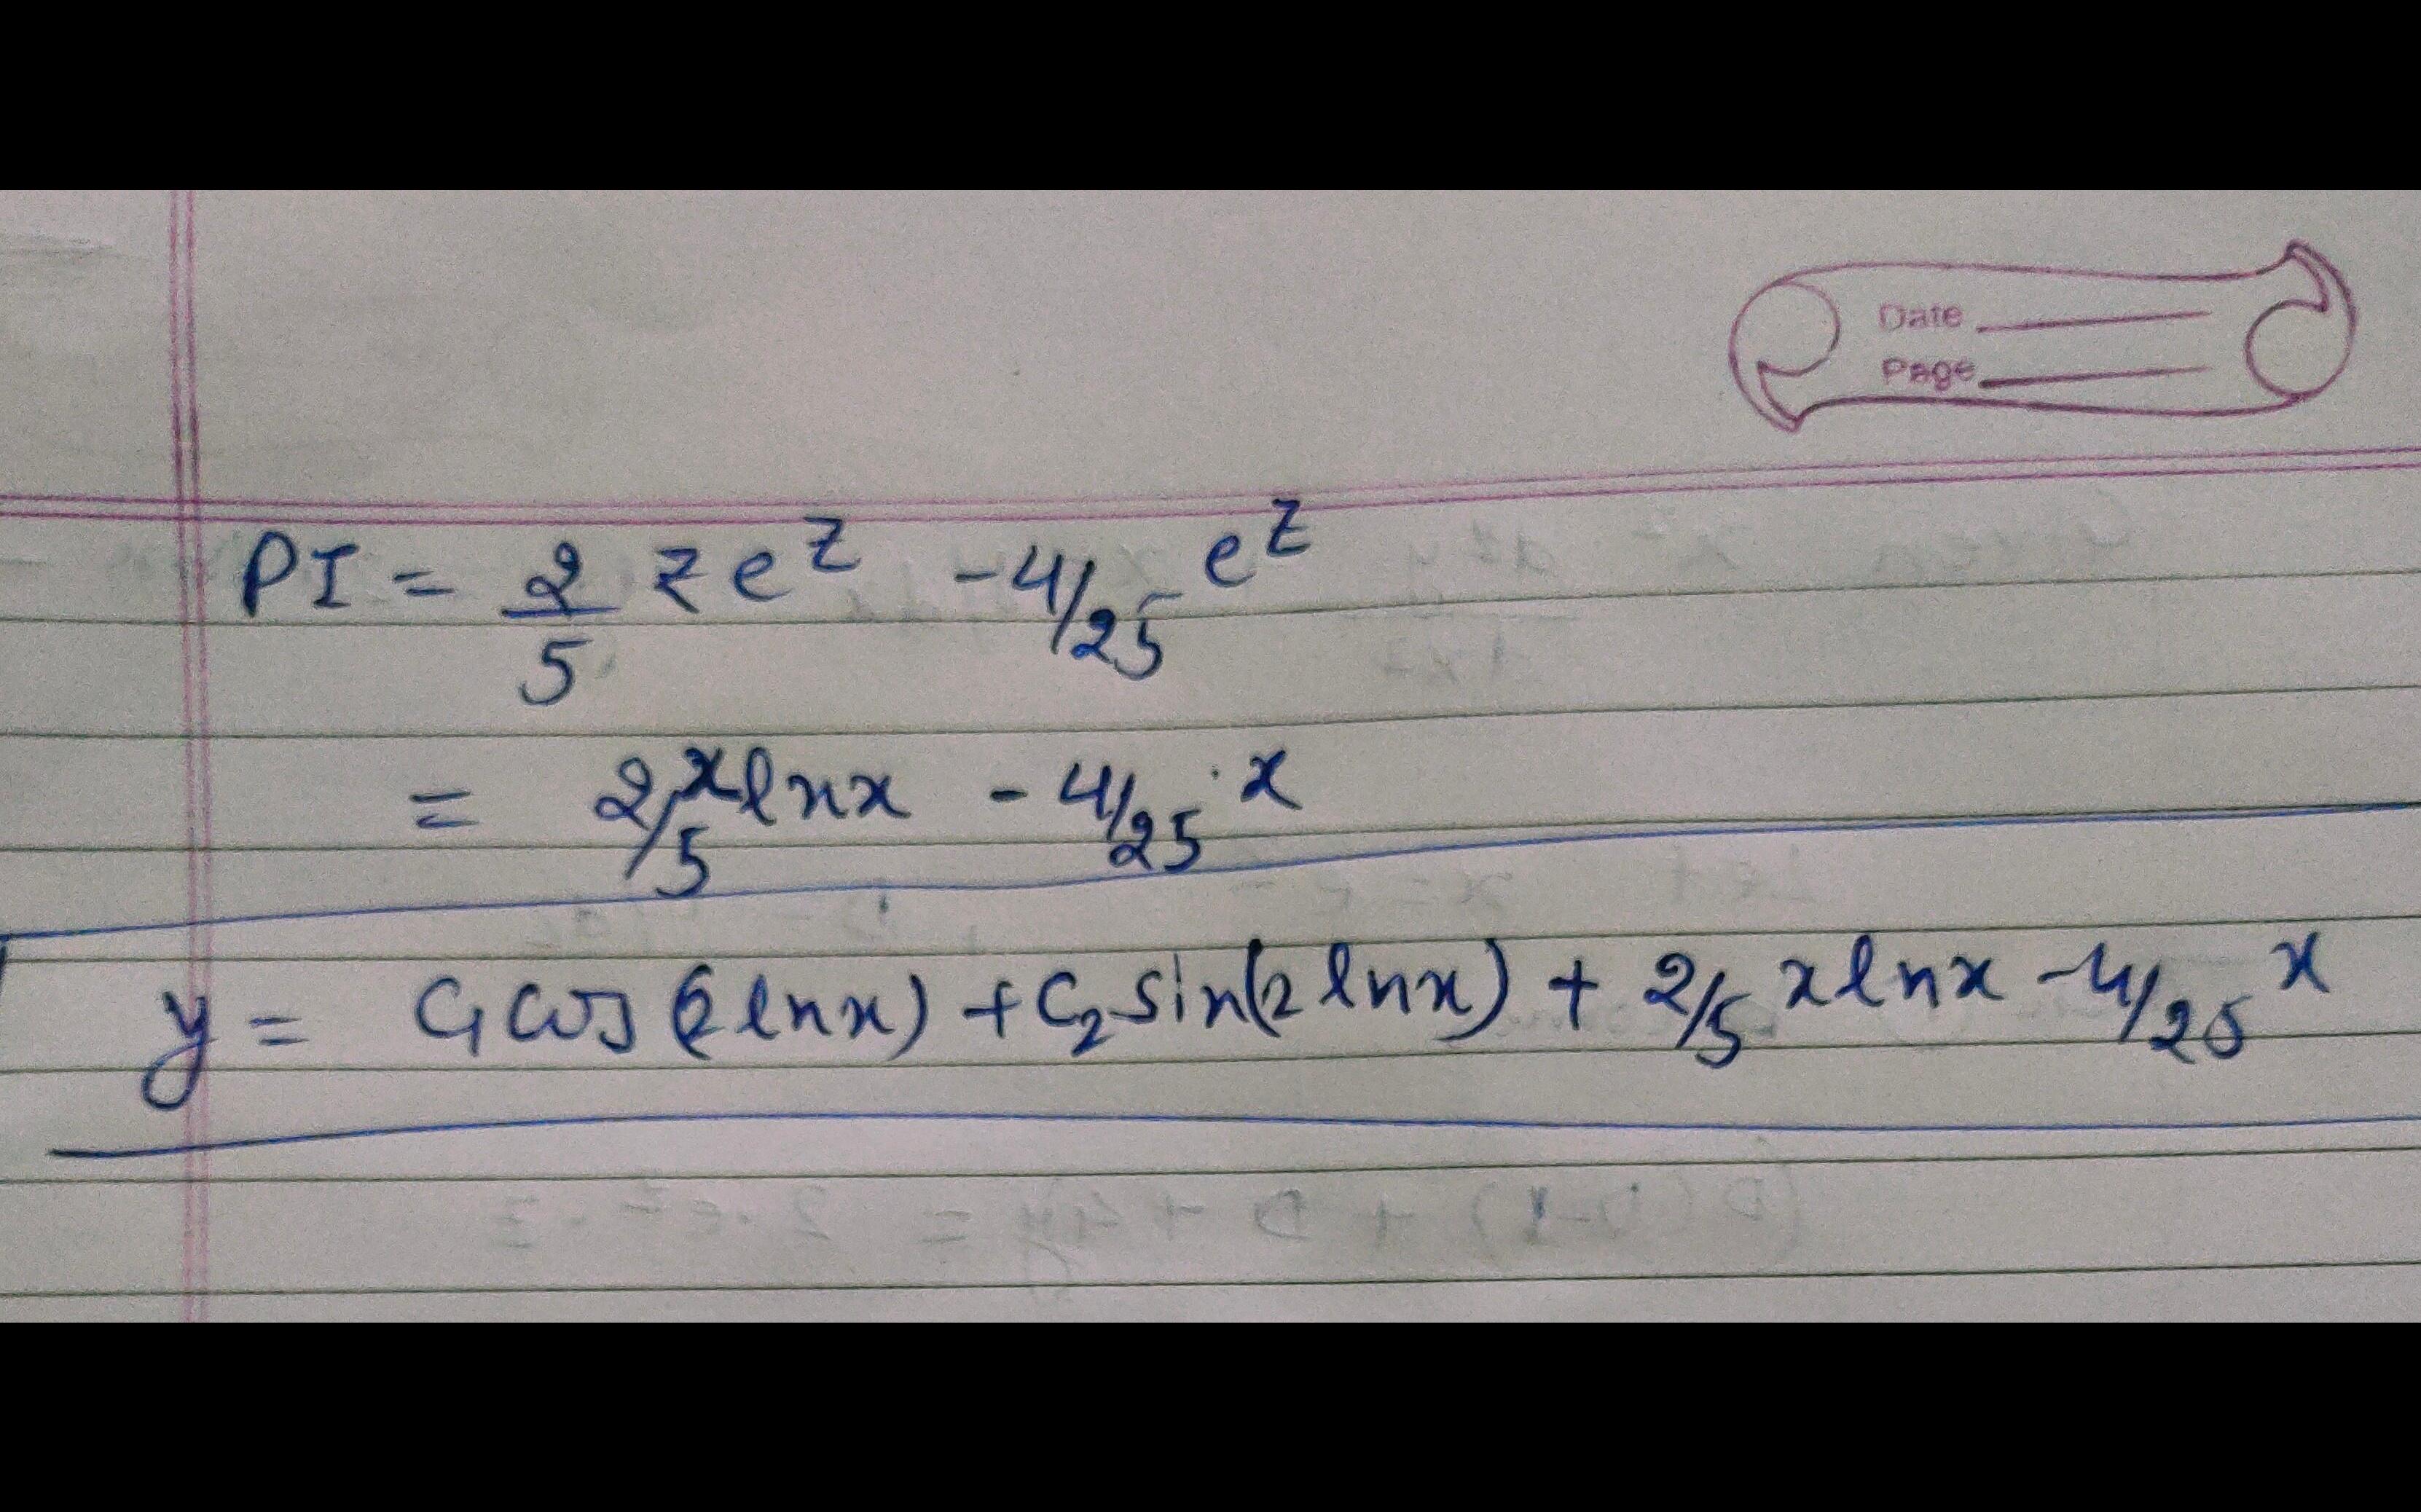 Date
Page
PI = 2/5 z e^z - 4/25 e^z
= 2/5 x ln x - 4/25 · x
y = C₁ cos (2 ln x) + C₂ sin(2 ln x) + 2/5 x ln x - 4/25 x